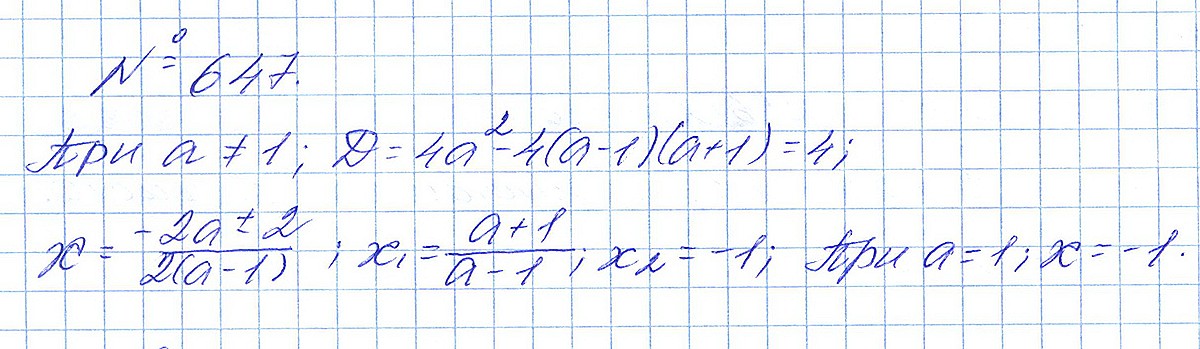 № 647.
При a ≠ 1; D = 4a² - 4(a-1)(a+1) = 4;
x = (-2a ± 2)/(2(a-1)); x₁ = (a+1)/(a-1); x₂ = -1; При a = 1; x = -1.